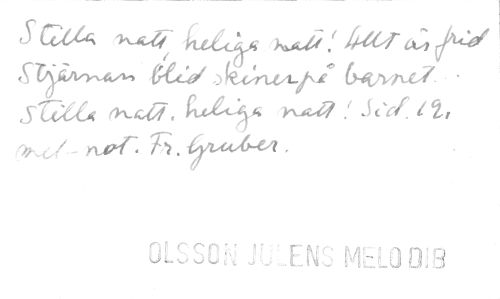 Stilla natt, heliga natt! Allt är frid
Stjärnan blid skiner på barnet...
Stilla natt. heliga natt! Sid. 19.
mel-not. Fr. Gruber.
OLSSON JULENS MELODIB